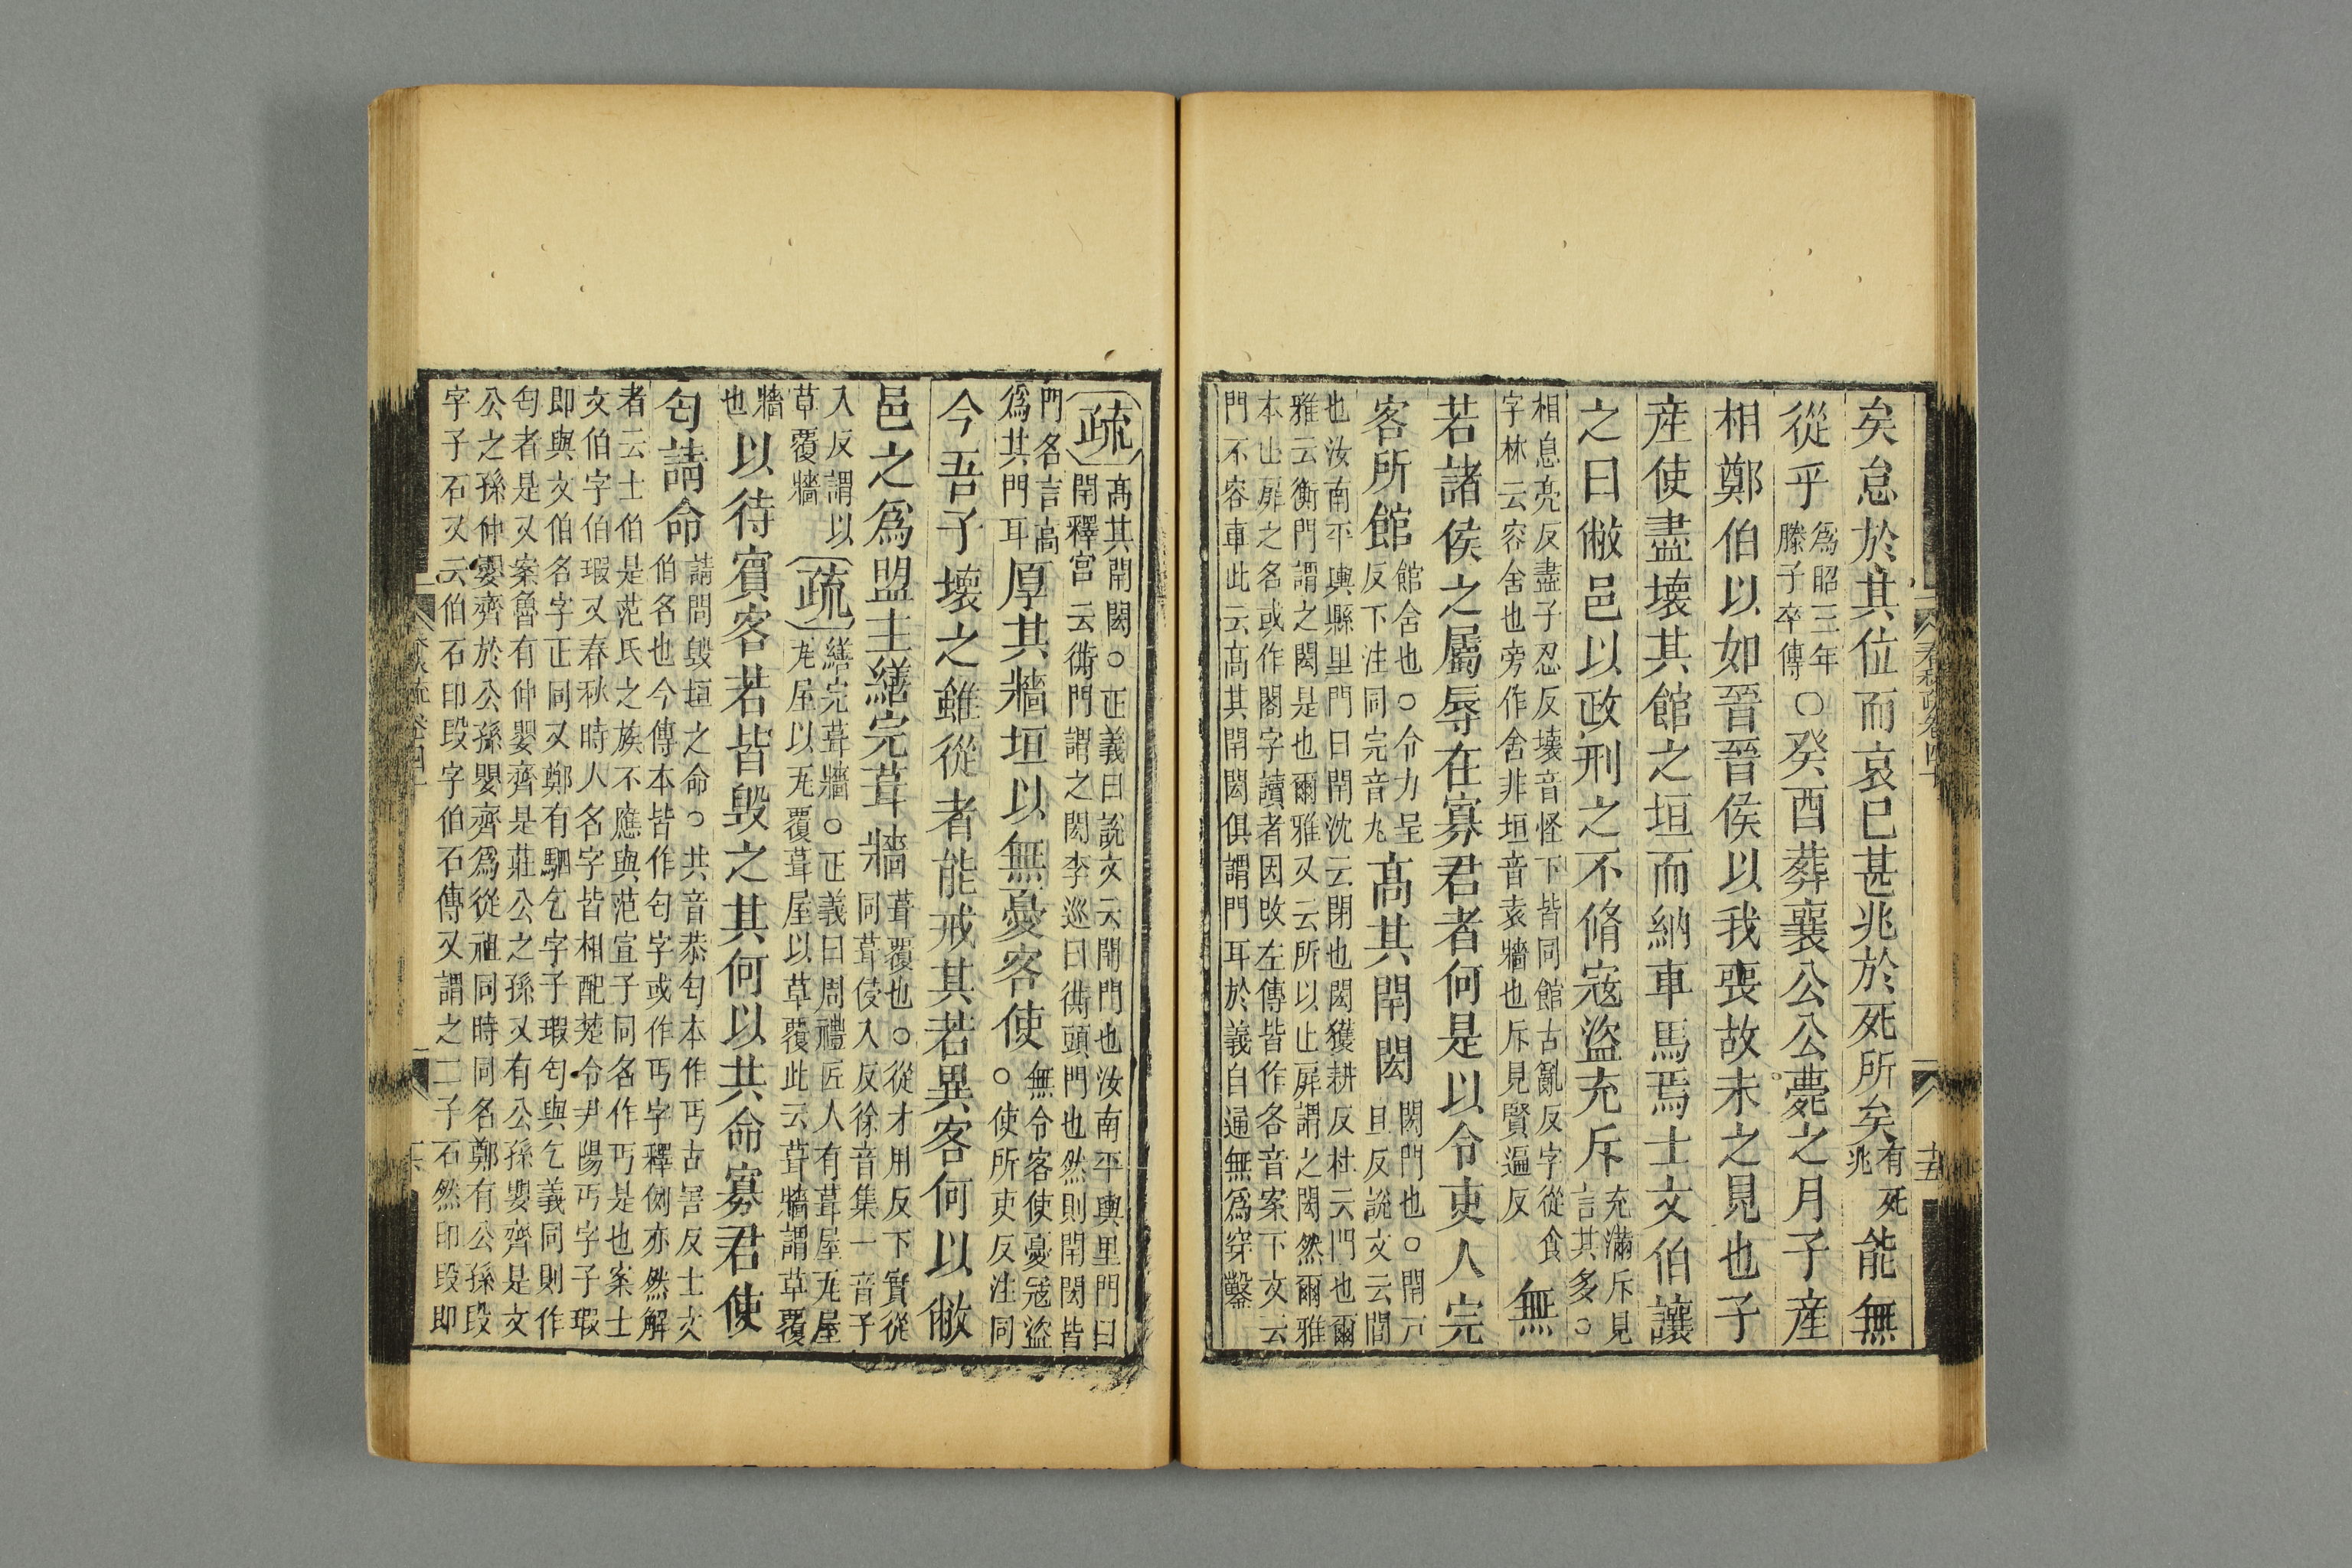 矣怠於其位而哀已甚兆於死所矣有死兆能無
從乎爲昭三年滕子卒傳○癸酉葬襄公公薨之月子產
相鄭伯以如晉晉侯以我喪故未之見也子
產使盡壞其館之垣而納車馬焉士文伯讓
之曰敝邑以政刑之不脩寇盜充斥充滿斥見言其多○
相息亮反盡子忍反壞音怪下皆同館古亂反字從食
字林云容舍也旁作舍非垣音袁牆也斥見賢遍反
無
若諸侯之屬辱在寡君者何是以令吏人完
客所館館舍也○令力呈反下注同完音丸高其閈閎閎門也○閈戸旦反說文云閭
也汝南平輿縣里門曰閈沈云閉也閎獲耕反杜云門也爾
雅云衡門謂之閎是也爾雅又云所以止扉謂之閎然爾雅
本止扉之名或作閣字讀者因改左傳皆作各音案下文云
門不容車此云高其閈閎俱謂門耳於義自通無爲穿鑿
疏高其閈閎○正義曰說文云閈門也汝南平輿里門曰閈釋宫云衖門謂之閎李巡曰衖頭門也然則閈閎皆
門名言高爲其門耳厚其牆垣以無憂客使無令客使憂寇盜○使所吏反注同
今吾子壞之雖從者能戒其若異客何以敝
邑之爲盟主繕完葺牆葺覆也○從才用反下賓從同葺侵入反徐音集一音子
入反謂以草覆牆疏繕完葺牆○正義曰周禮匠人有葺屋瓦屋瓦屋以瓦覆葺屋以草覆此云葺牆謂草覆
牆也以待賓客若皆毀之其何以共命寡君使
匄請命請問毀垣之命○共音恭匄本作丐古害反士文伯名也今傳本皆作匄字或作丐字釋例亦然解
者云士伯是范氏之族不應與范宣子同名作丐是也案士
文伯字伯瑕又春秋時人名字皆相配楚令尹陽丐字子瑕
即與文伯名字正同又鄭有駟乞字子瑕匄與乞義同則作
匄者是又案魯有仲嬰齊是莊公之孫又有公孫嬰齊是文
公之孫仲嬰齊於公孫嬰齊爲從祖同時同名鄭有公孫段
字子石又云伯石印段字伯石傳又謂之二子石然印段即